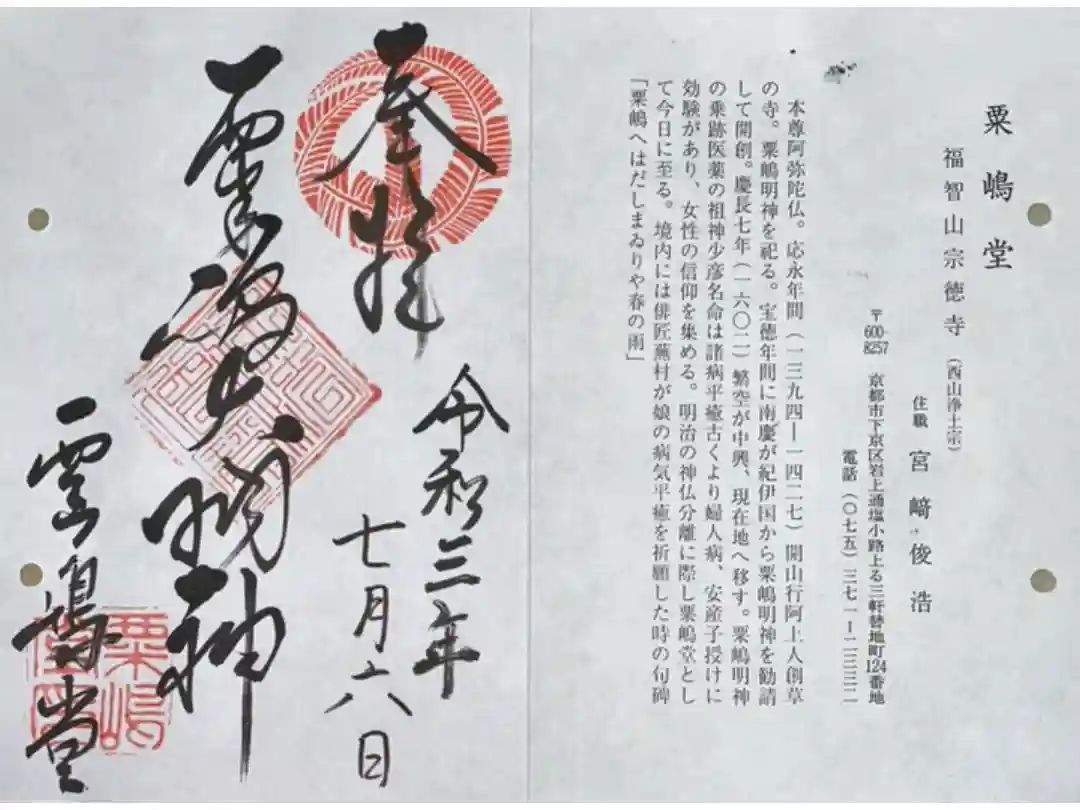 粟嶋堂
福智山宗徳寺(西山浄土宗)
住職 宮﨑俊浩
〒600-8257 京都市下京区岩上通塩小路上る三軒替地町124番地
電話(〇七五)三七一ー二三三二
本尊阿弥陀仏。応永年間(一三九四―一四二七)開山行阿上人創草
の寺。粟嶋明神を祀る。宝徳年間に南慶が紀伊国から粟嶋明神を勧請
して開創。慶長七年(一六〇二)繁空が中興、現在地へ移す。粟嶋明神
の乗跡医薬の祖神少彦名命は諸病平癒古くより婦人病、安産子授けに
効験があり、女性の信仰を集める。明治の神仏分離に際し粟嶋堂とし
て今日に至る。境内には俳匠蕪村が娘の病気平癒を祈願した時の句碑
「粟嶋へはだしまゐりや春の雨」
奉拝
令和三年
七月六日
粟嶋大明神
粟嶋堂
粟嶋堂印